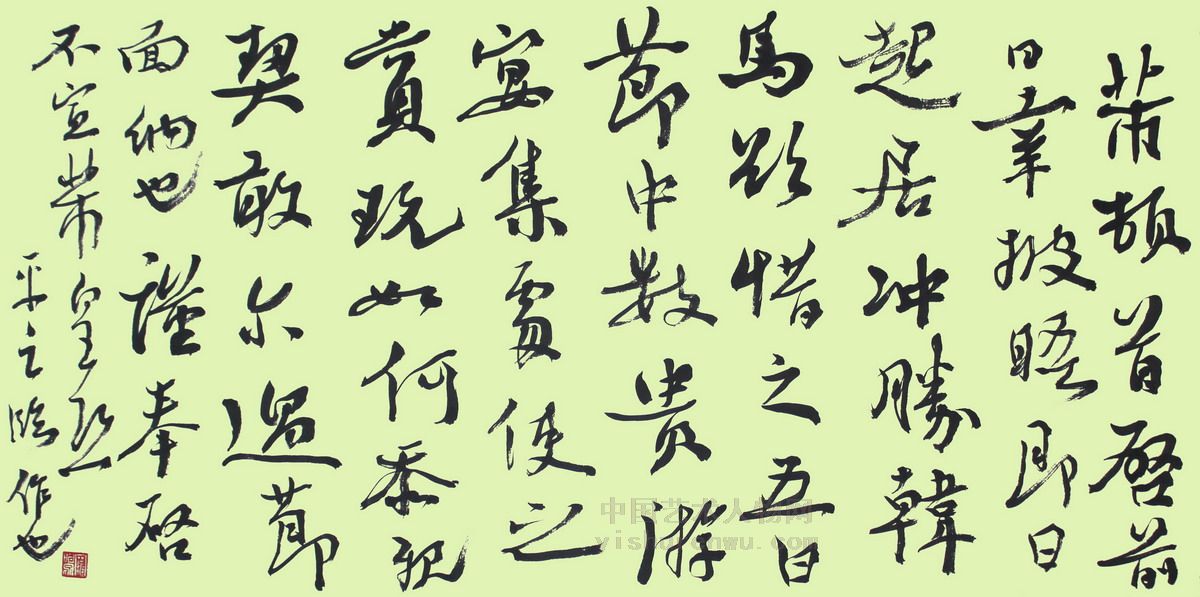 芾頓首啓前
日幸披晤即日
起居冲勝韓
馬欲借之五日
節中數貴游
宴集處使之
賞玩如何忝親
契敢尔過節
面納也謹奉啓
不宣芾皇恐
平之臨作也
中国艺术人物网
yishurenwu.com